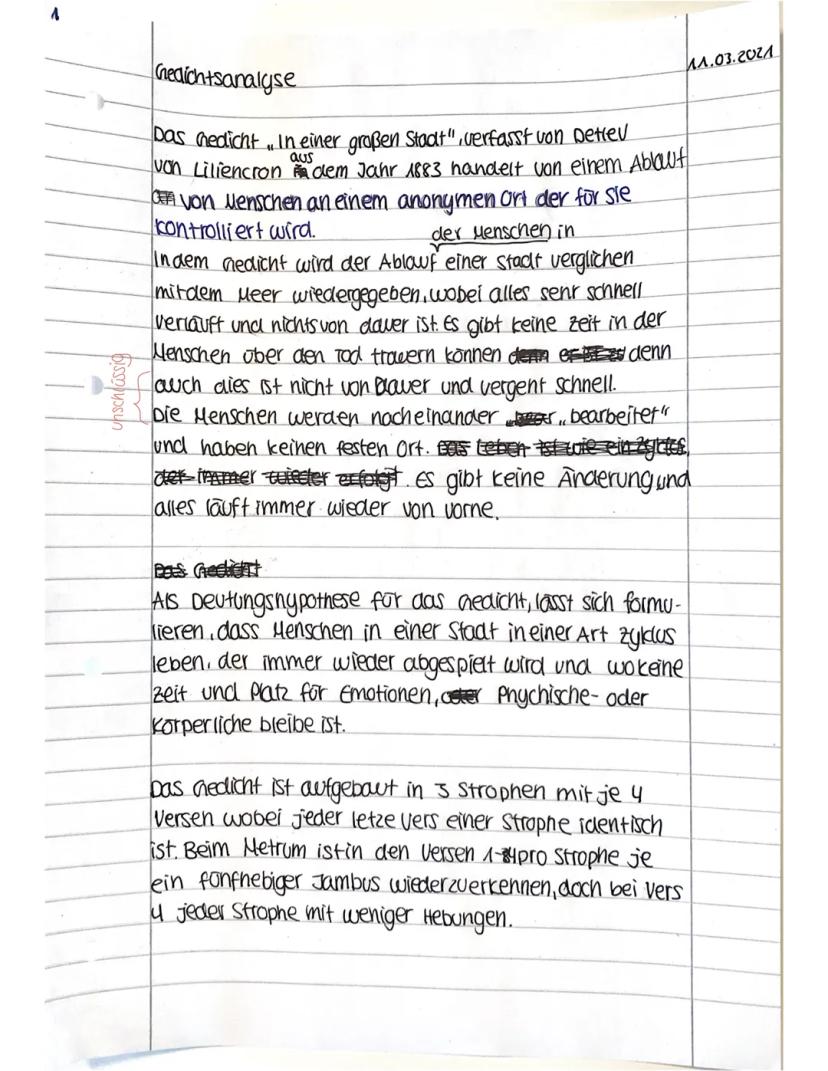 1
11.03.2021
Gedichtsanalyse
Das Gedicht „In einer großen Stadt", verfasst von Detlev
aus
von Liliencron dem Jahr 1883 handelt von einem Ablauf
von Menschen an einem anonymen Ort der für sie
kontrolliert wird.
der Menschen in
In dem Gedicht wird der Ablauf einer Stadt verglichen
mit dem Meer wiedergegeben, wobei alles sehr schnell
verläuft und nichts von dauer ist. Es gibt keine zeit in der
Menschen über den Tod trauern können denn er ist es denn
auch dies ist nicht von Dauer und vergeht schnell.
unschlüssig
Die Menschen werden nacheinander „bearbeitet"
und haben keinen festen Ort. Das Leben ist wie ein Zyklus,
der immer wieder erfolgt. Es gibt keine Änderung und
alles läuft immer wieder von vorne.
Das Gedicht
Als Deutungshypothese für das Gedicht, lässt sich formu-
lieren, dass Menschen in einer Stadt in einer Art zyklus
leben, der immer wieder abgespielt wird und wo keine
zeit und Platz für Emotionen, oder Phychische- oder
Körperliche bleibe ist.
Das Gedicht ist aufgebaut in 3 Strophen mit je 4
Versen wobei jeder letze Vers einer Strophe identisch
ist. Beim Metrum ist in den Versen 1- pro Strophe je
ein fünfhebiger Jambus wiederzuerkennen, doch bei Vers
4 jeder Strophe mit weniger Hebungen.